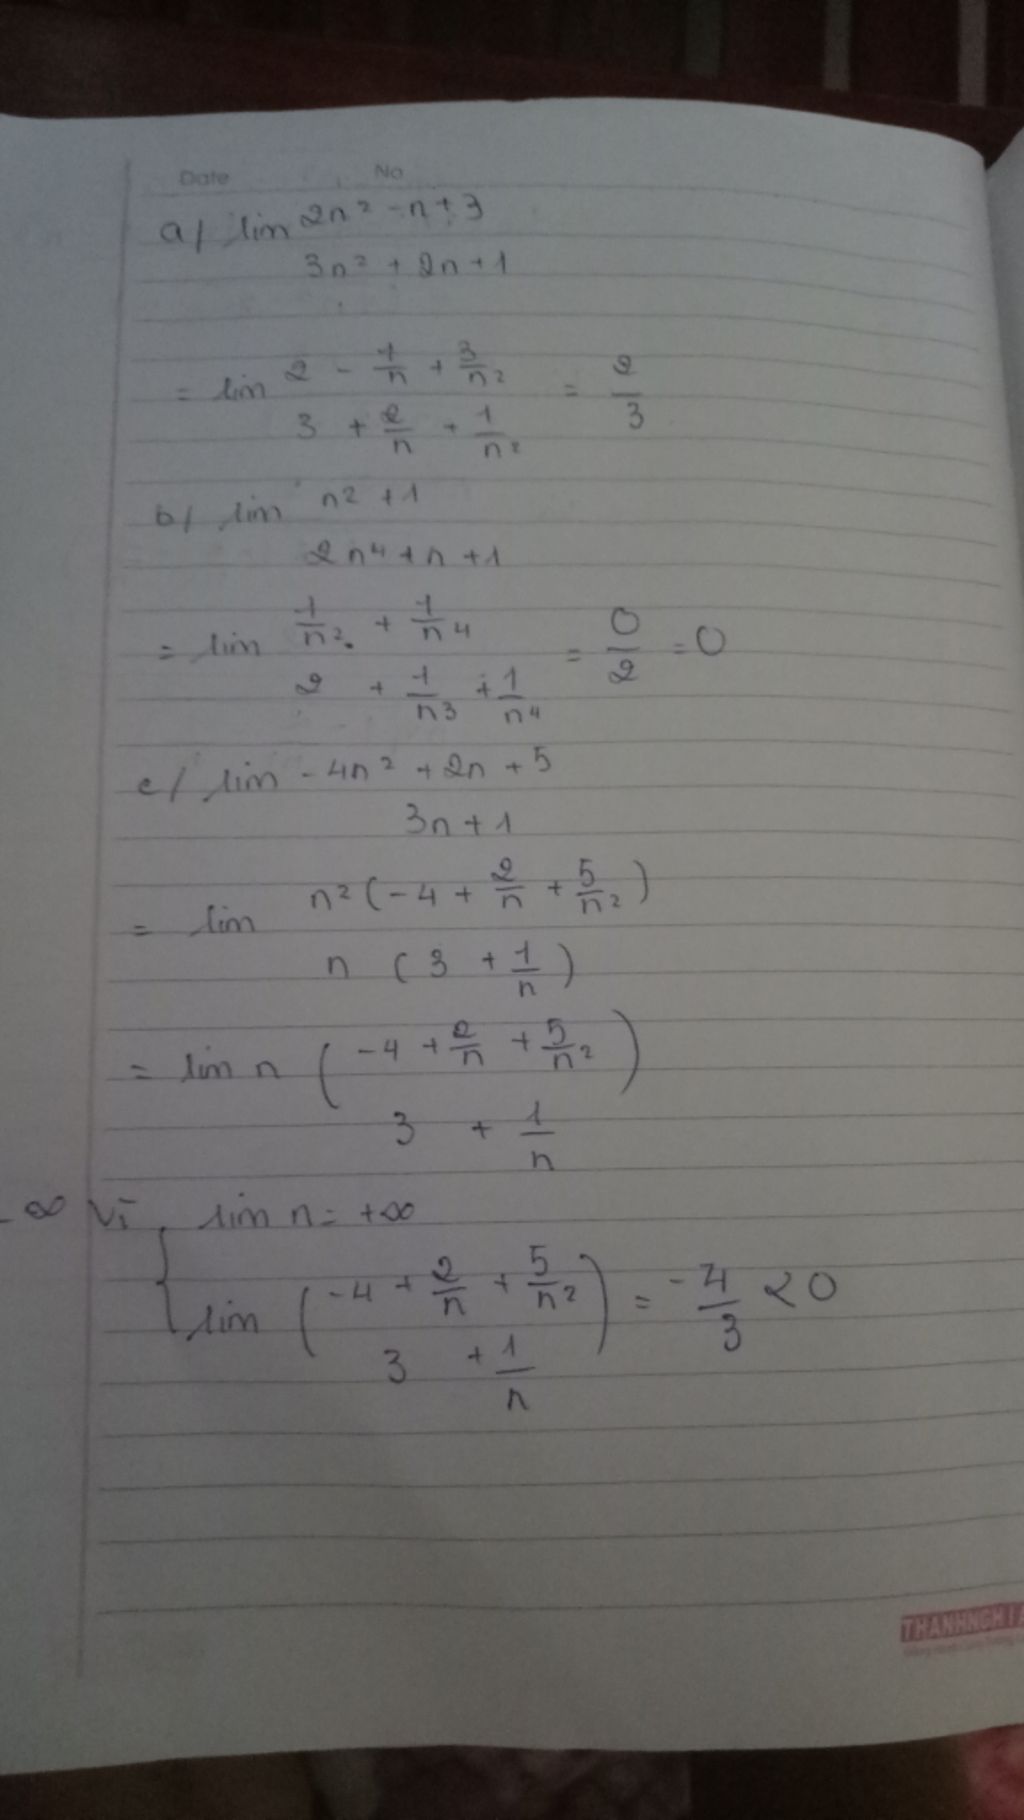 Date No
a/ lim 2n² - n + 3
3n² + 2n + 1
= lim 2 - 1/n + 3/n² = 2/3
3 + 2/n + 1/n²
b/ lim n² + 1
2n⁴ + n + 1
= lim 1/n² + 1/n⁴ = 0/2 = 0
2 + 1/n³ + 1/n⁴
c/ lim - 4n² + 2n + 5
3n + 1
= lim n² ( - 4 + 2/n + 5/n² )
n ( 3 + 1/n )
= lim n ( - 4 + 2/n + 5/n² )
3 + 1/n
- ∞ Vì { lim n = +∞
lim ( - 4 + 2/n + 5/n² ) = - 4/3 < 0
3 + 1/n
THANHNGHIA